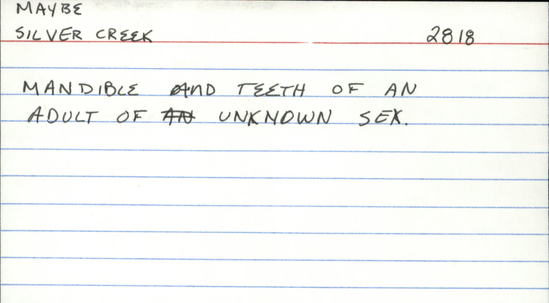 MAYBE
SILVER CREEK 2818
MANDIBLE AND TEETH OF AN
ADULT OF AN UNKNOWN SEX.